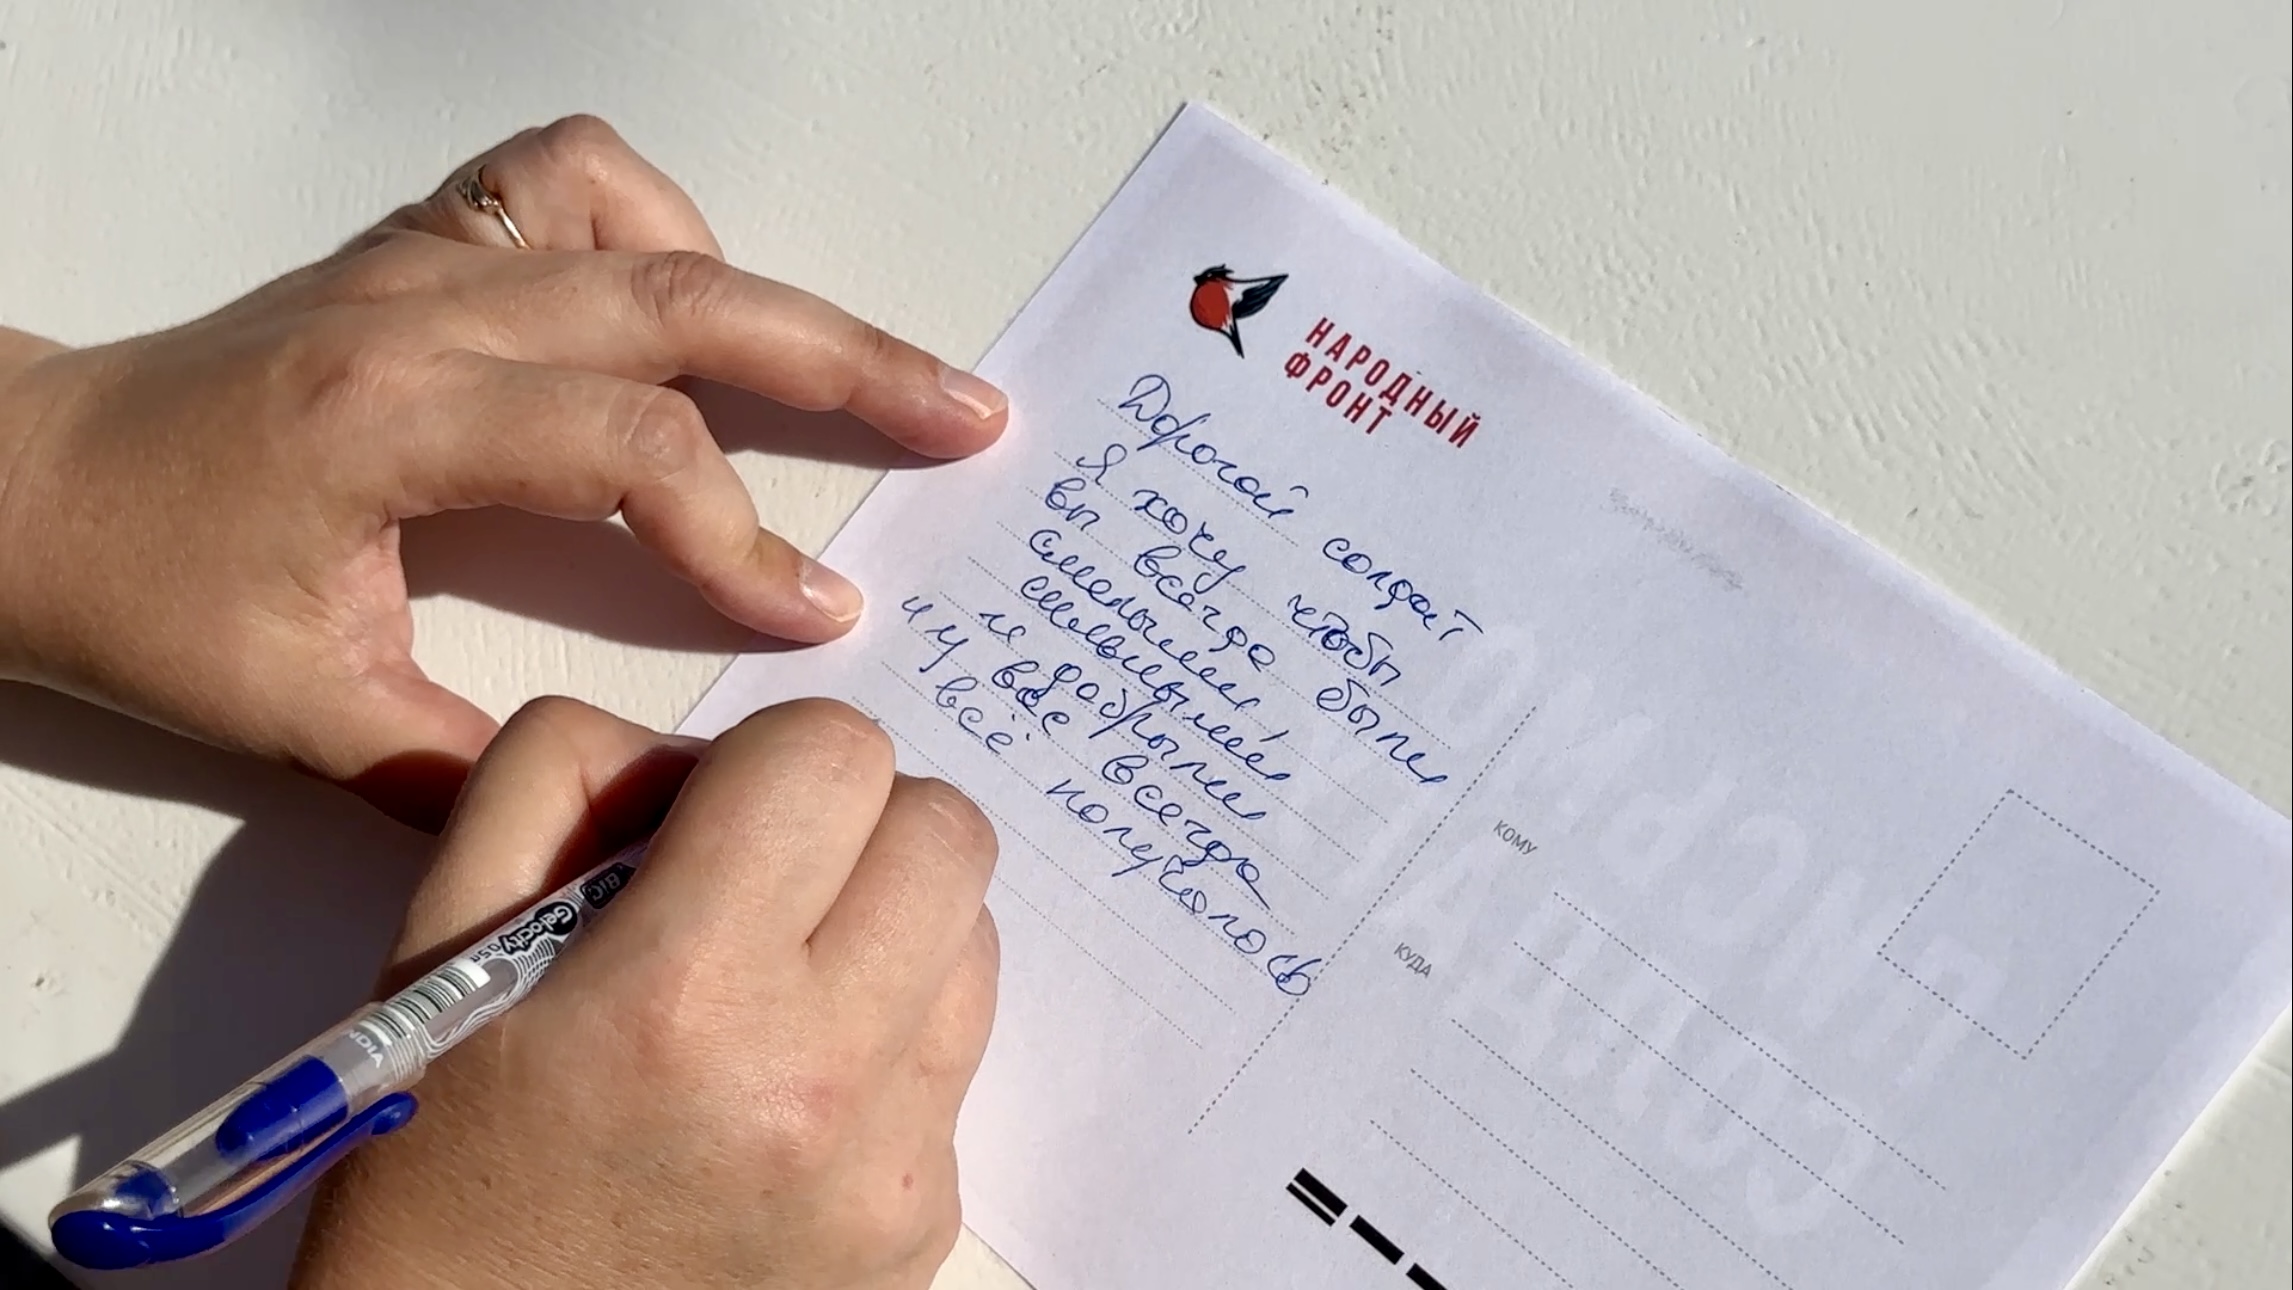 НАРОДНЫЙ
ФРОНТ
Дорогой солдат
Я хочу чтобы
вы всегда были
смелыми
сильными
и добрыми
и у вас всегда
всё получалось
КОМУ
КУДА
BIC
Gelocity 0.5
INDIA